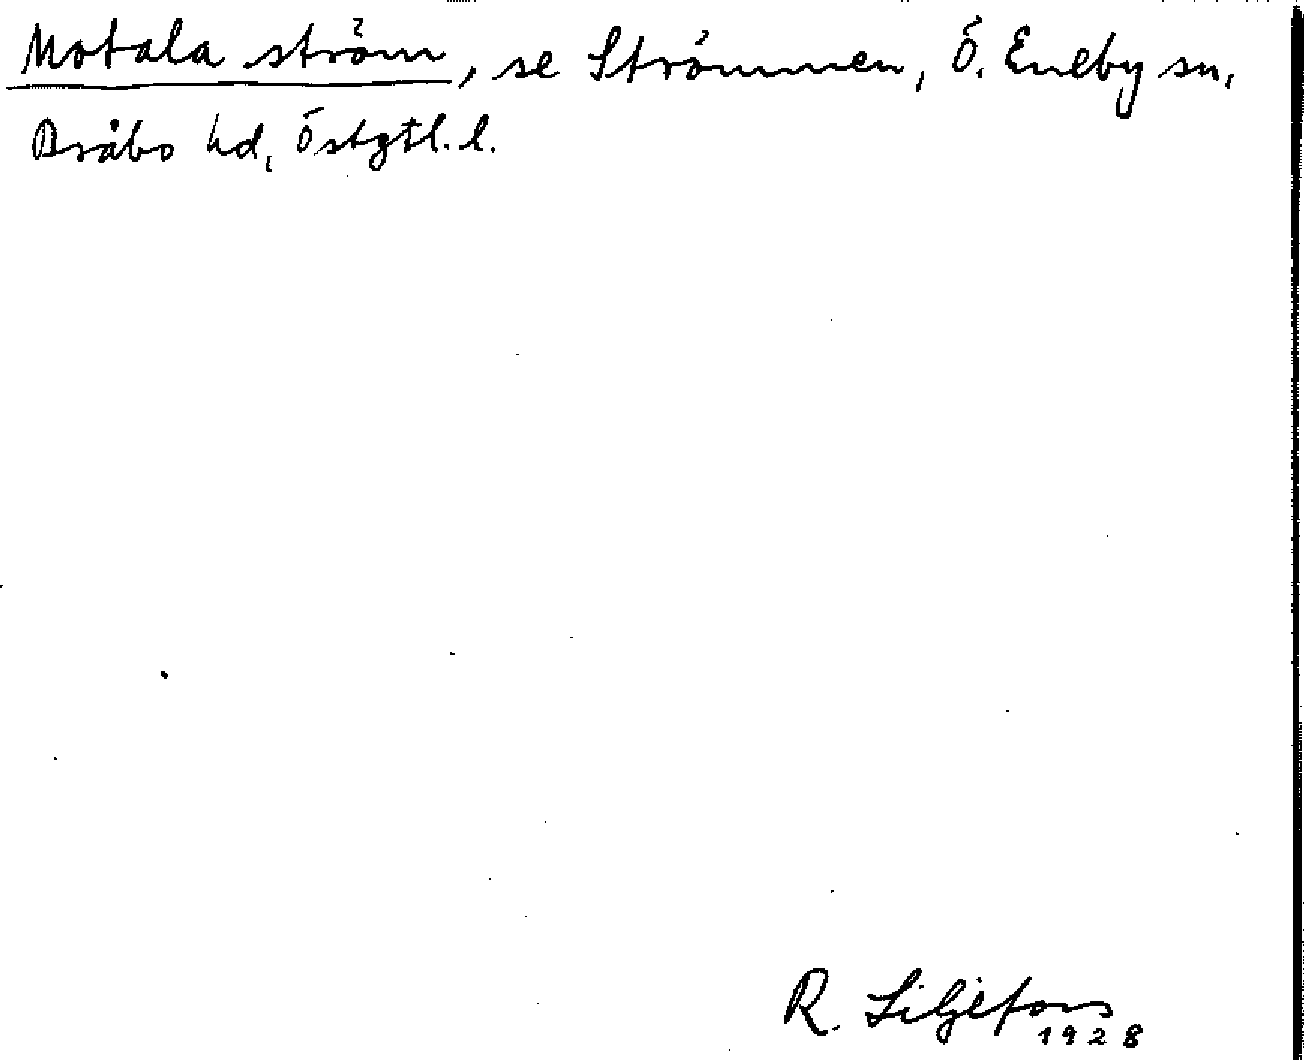 Motala ström, se Strömmen, Ö. Eneby sn,
Bråbo hd, Östgtl. l.
R. Liljefors
1928